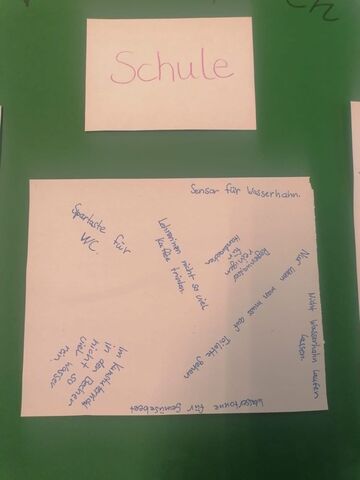 Schule
Sensor für Wasserhahn.
Spartaste für
WC
Lehrerinnen nicht so viel
Kaffee trinken.
Regenwasser
für
Nur wenn man muss auf Toilette gehen
Nicht Wasserhahn laufen
lassen.
Im Kunstunterricht
in den Becher
nicht so
viel Wasser
rein
Wassertonne für Gemüsebeet